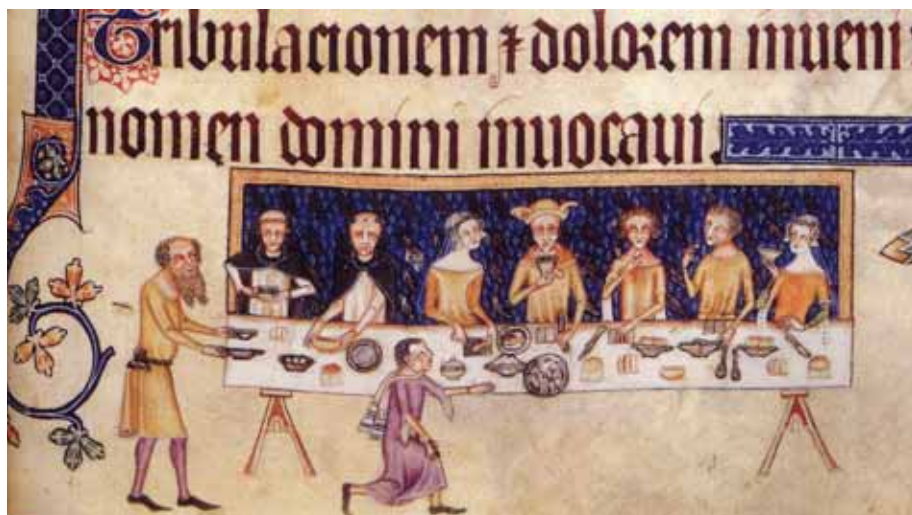 Tribulacionem ⁊ dolorem inueni
nomen domini inuocaui.